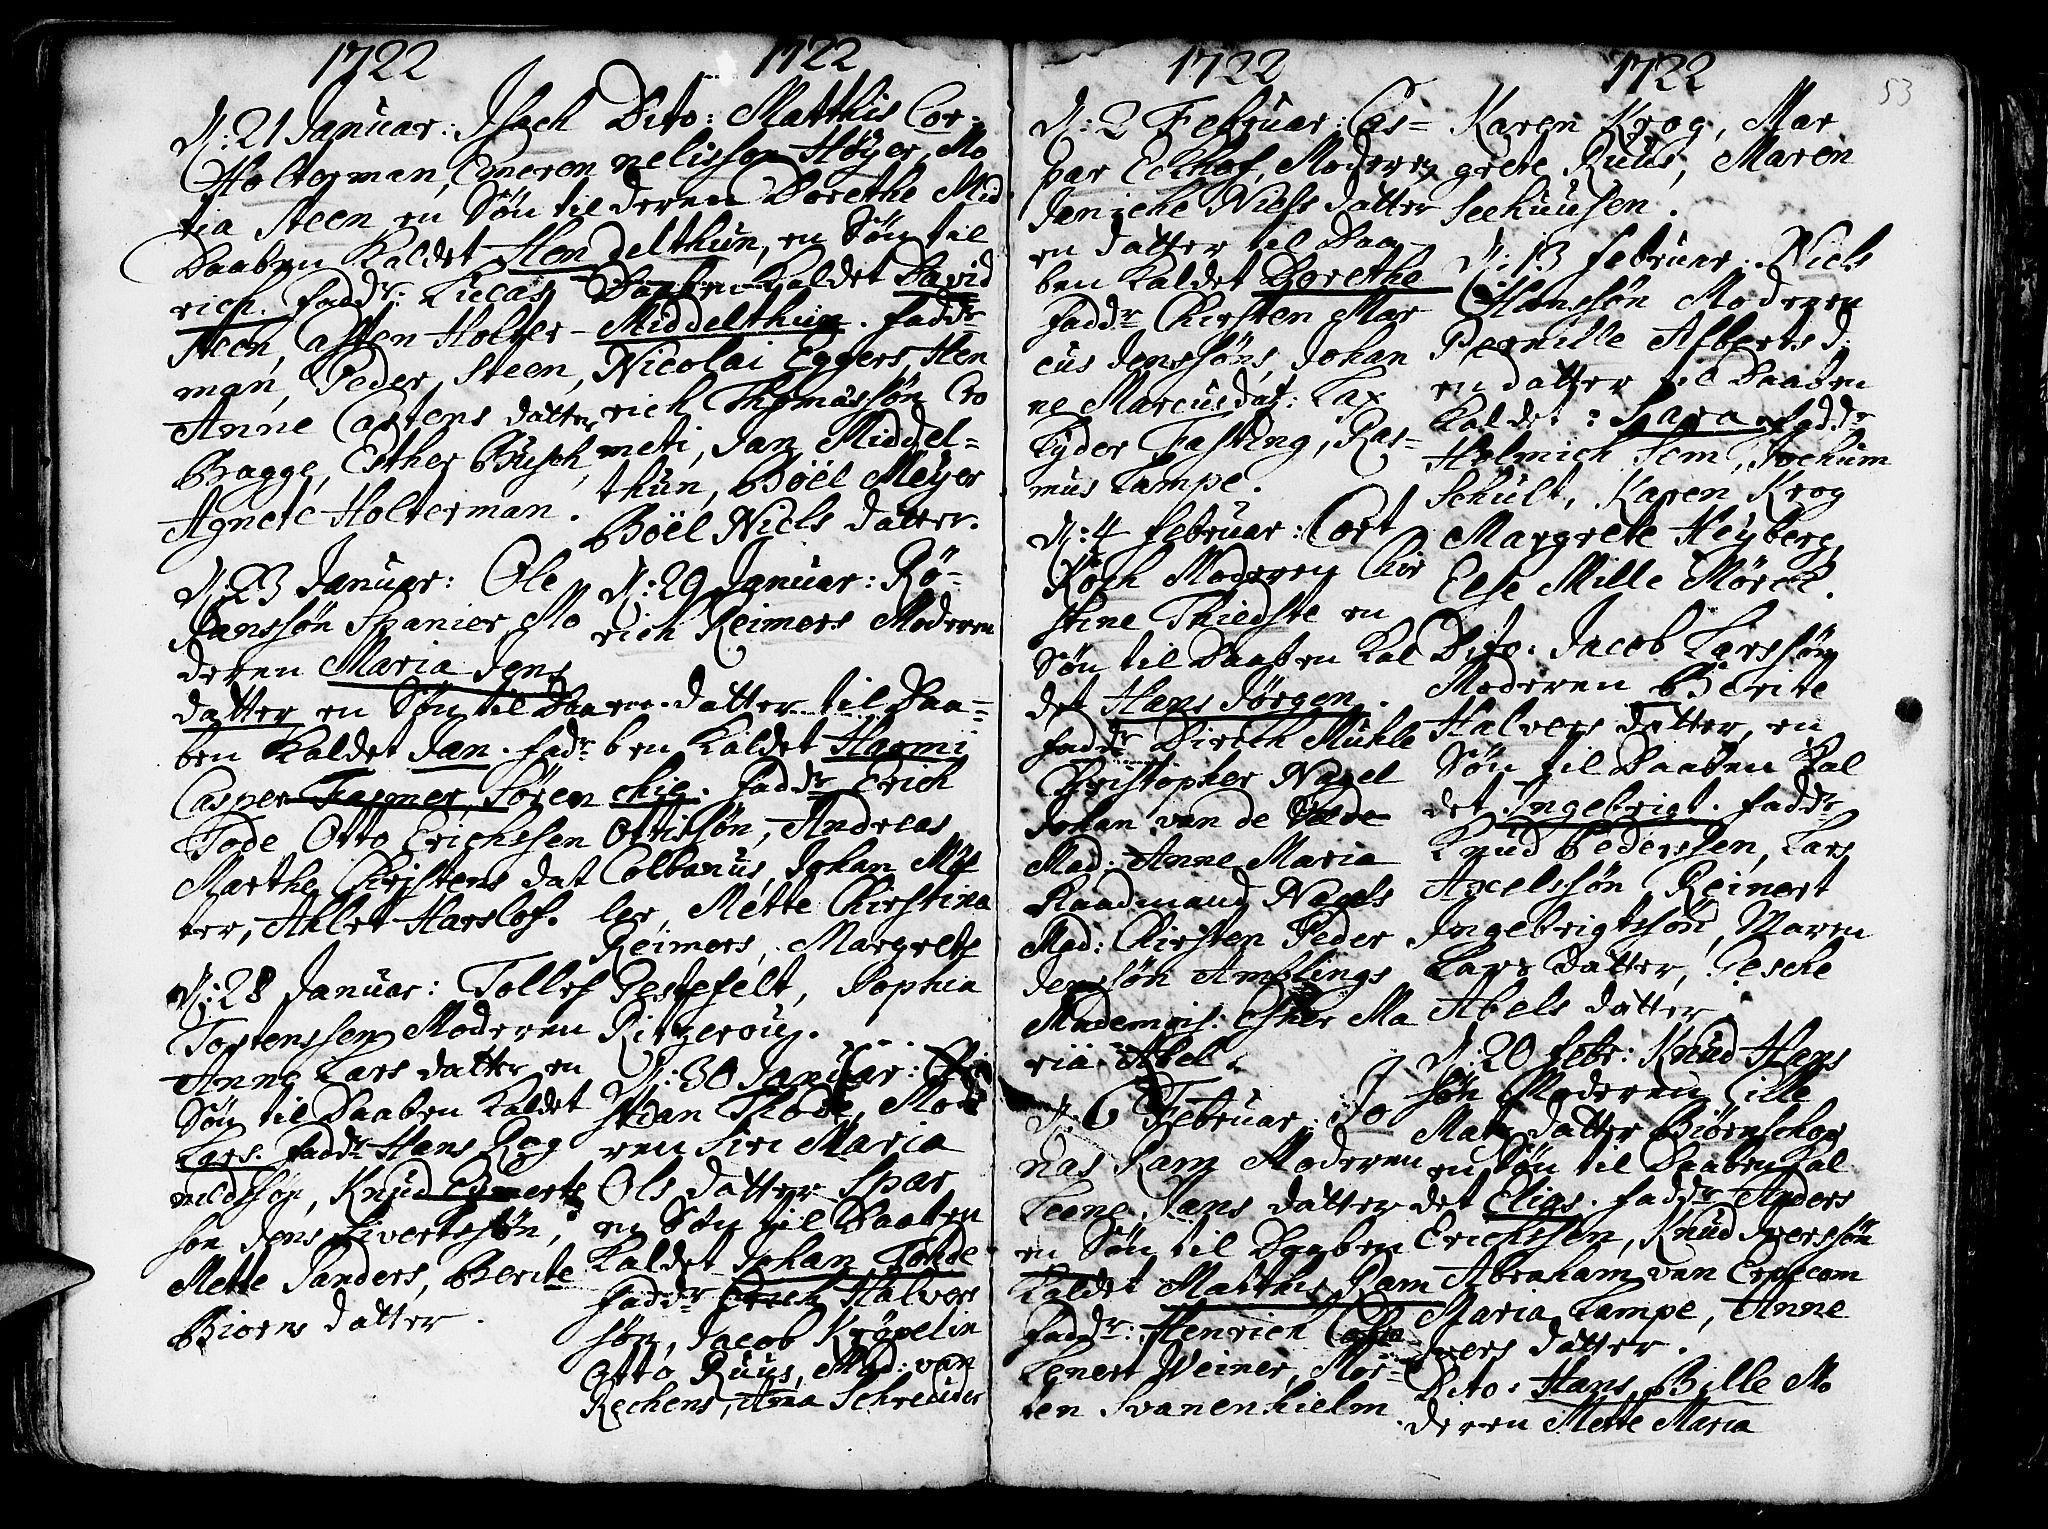 1722
D: 21 Januar: Isach
Holterman, Emeren
tia Steen en Søn til
Daaben kaldet Hen
rich. Fadd: Lucas
Steen, Asten Holter-
man, Peder Steen,
Anne Castens datter
Bagge, Esther Busch,
Agnete Holterman.
D: 23 Januar: Ole
Hanssøn Spanier Mo
deren Maria Jens
datter en Søn til Daa
ben kaldet Jan. Fadr
Casper Fasmer, Søren
Tode Otto Erichssen
Marthe Christens dat
ter, Ahlet Harslof.
D: 28 Januar: Tollef
Tostenssen Moderen
Anne Lars datter en
Søn til Daaben kaldet
Lars. Fadd: Hans Rog
nildssøn, Knud
søn Jens Sivertssøn,
Mette Sanders, Berite
Biorns datter.
1722
Dito: Matthis Cor-
nelissøn Høyer, Mo
deren Dorethe Mid
delthun, en Søn til
Daaben kaldet David
Middelthun. Fadd:
Nicolai Eggers, Hen
rich Thomassøn Cro
meti, Jan Middel=
thun, Böel Meyer
Böel Niels datter.
D: 29 Januar: Rö-
rich Reimers Moderen
en datter til Daa-
ben kaldet Harmi
chie. Fadd: Erich
Ottissøn, Andreas
Colbanus, Johan Møl
ler, Mette Chirstina
Reimers, Margrete
Pestefelt, Sophia
Ritzerouy.
D: 30 Januar: Chri
stian Thode, Mode
ren Siri Maria
Ols datter Spar
en Søn til Daaben
kaldet Johan Tohde
Fadd: Erich Halvor
søn, Jacob Kröpelin
Otto Ruus, Mad: van
Rechens, Anna Schreuder
1722
D: 2 Februar: Cas=
par Eckhof, Moderen
Janiche Niels datter
en datter til Daa
ben kaldet Dorethe
Fadd: Chirsten Mar
cus Jenssøns, Johan
ne Marcusdat: Lax
Lyder Fasting, Ras-
mus Lampe.
D: 4 Februar: Cort
Koch Moderen Chir
stine Thiedste en
Søn til Daaben kal
det Hans Jörgen.
Fadd: Dirich Mühle
Christopher Nagel
Johan van de Velde
Mad: Anne Maria
Raadmand Nagels
Mad: Chirsten Peder
Jenssøn Amblings
Mademois: Esther Ma
ria Abel.
D: 6 Februar: Jo
nas Ram Moderen
Leene Jans datter
en Søn til Daaben
kaldet Matthis Ram
Fadd: Henrich
Lenert Weiner, Mor-
ten Svanenhielm
1722
53
Karen Krog, Mar
grete Ruus, Maren
Seehuusen.
D: 13 Februar: Niels
Hanssøn Moderen
Pernille Alberts d:
en datter til Daaben
kaldet: Sara. Fadd:
Helmich Tom, Jochum
Schult, Karen Krog
Margrete Heyberg,
Else Mille Mørck.
Dito: Jacob Larssøn
Moderen Berite
Halvers datter, en
Søn til Daaben kal
det Ingebrigt. Fadd:
Knud Pederssen, Lars
Axelssøn, Reinert
Ingebrigtssøn, Maren
Lars datter, Gesche
Abels datter.
D: 20 Febr: Knud Hans
søn Moderen Cille
Mats datter Biørnschog
en Søn til Daaben kal
det Elias. Fadd: Anders
Erichssen, Knud Iverssøn
Abraham van Erpecom
Maria Lampe, Anne
Ivers datter.
Dito: Hans Bille Mo
deren Mette Maria